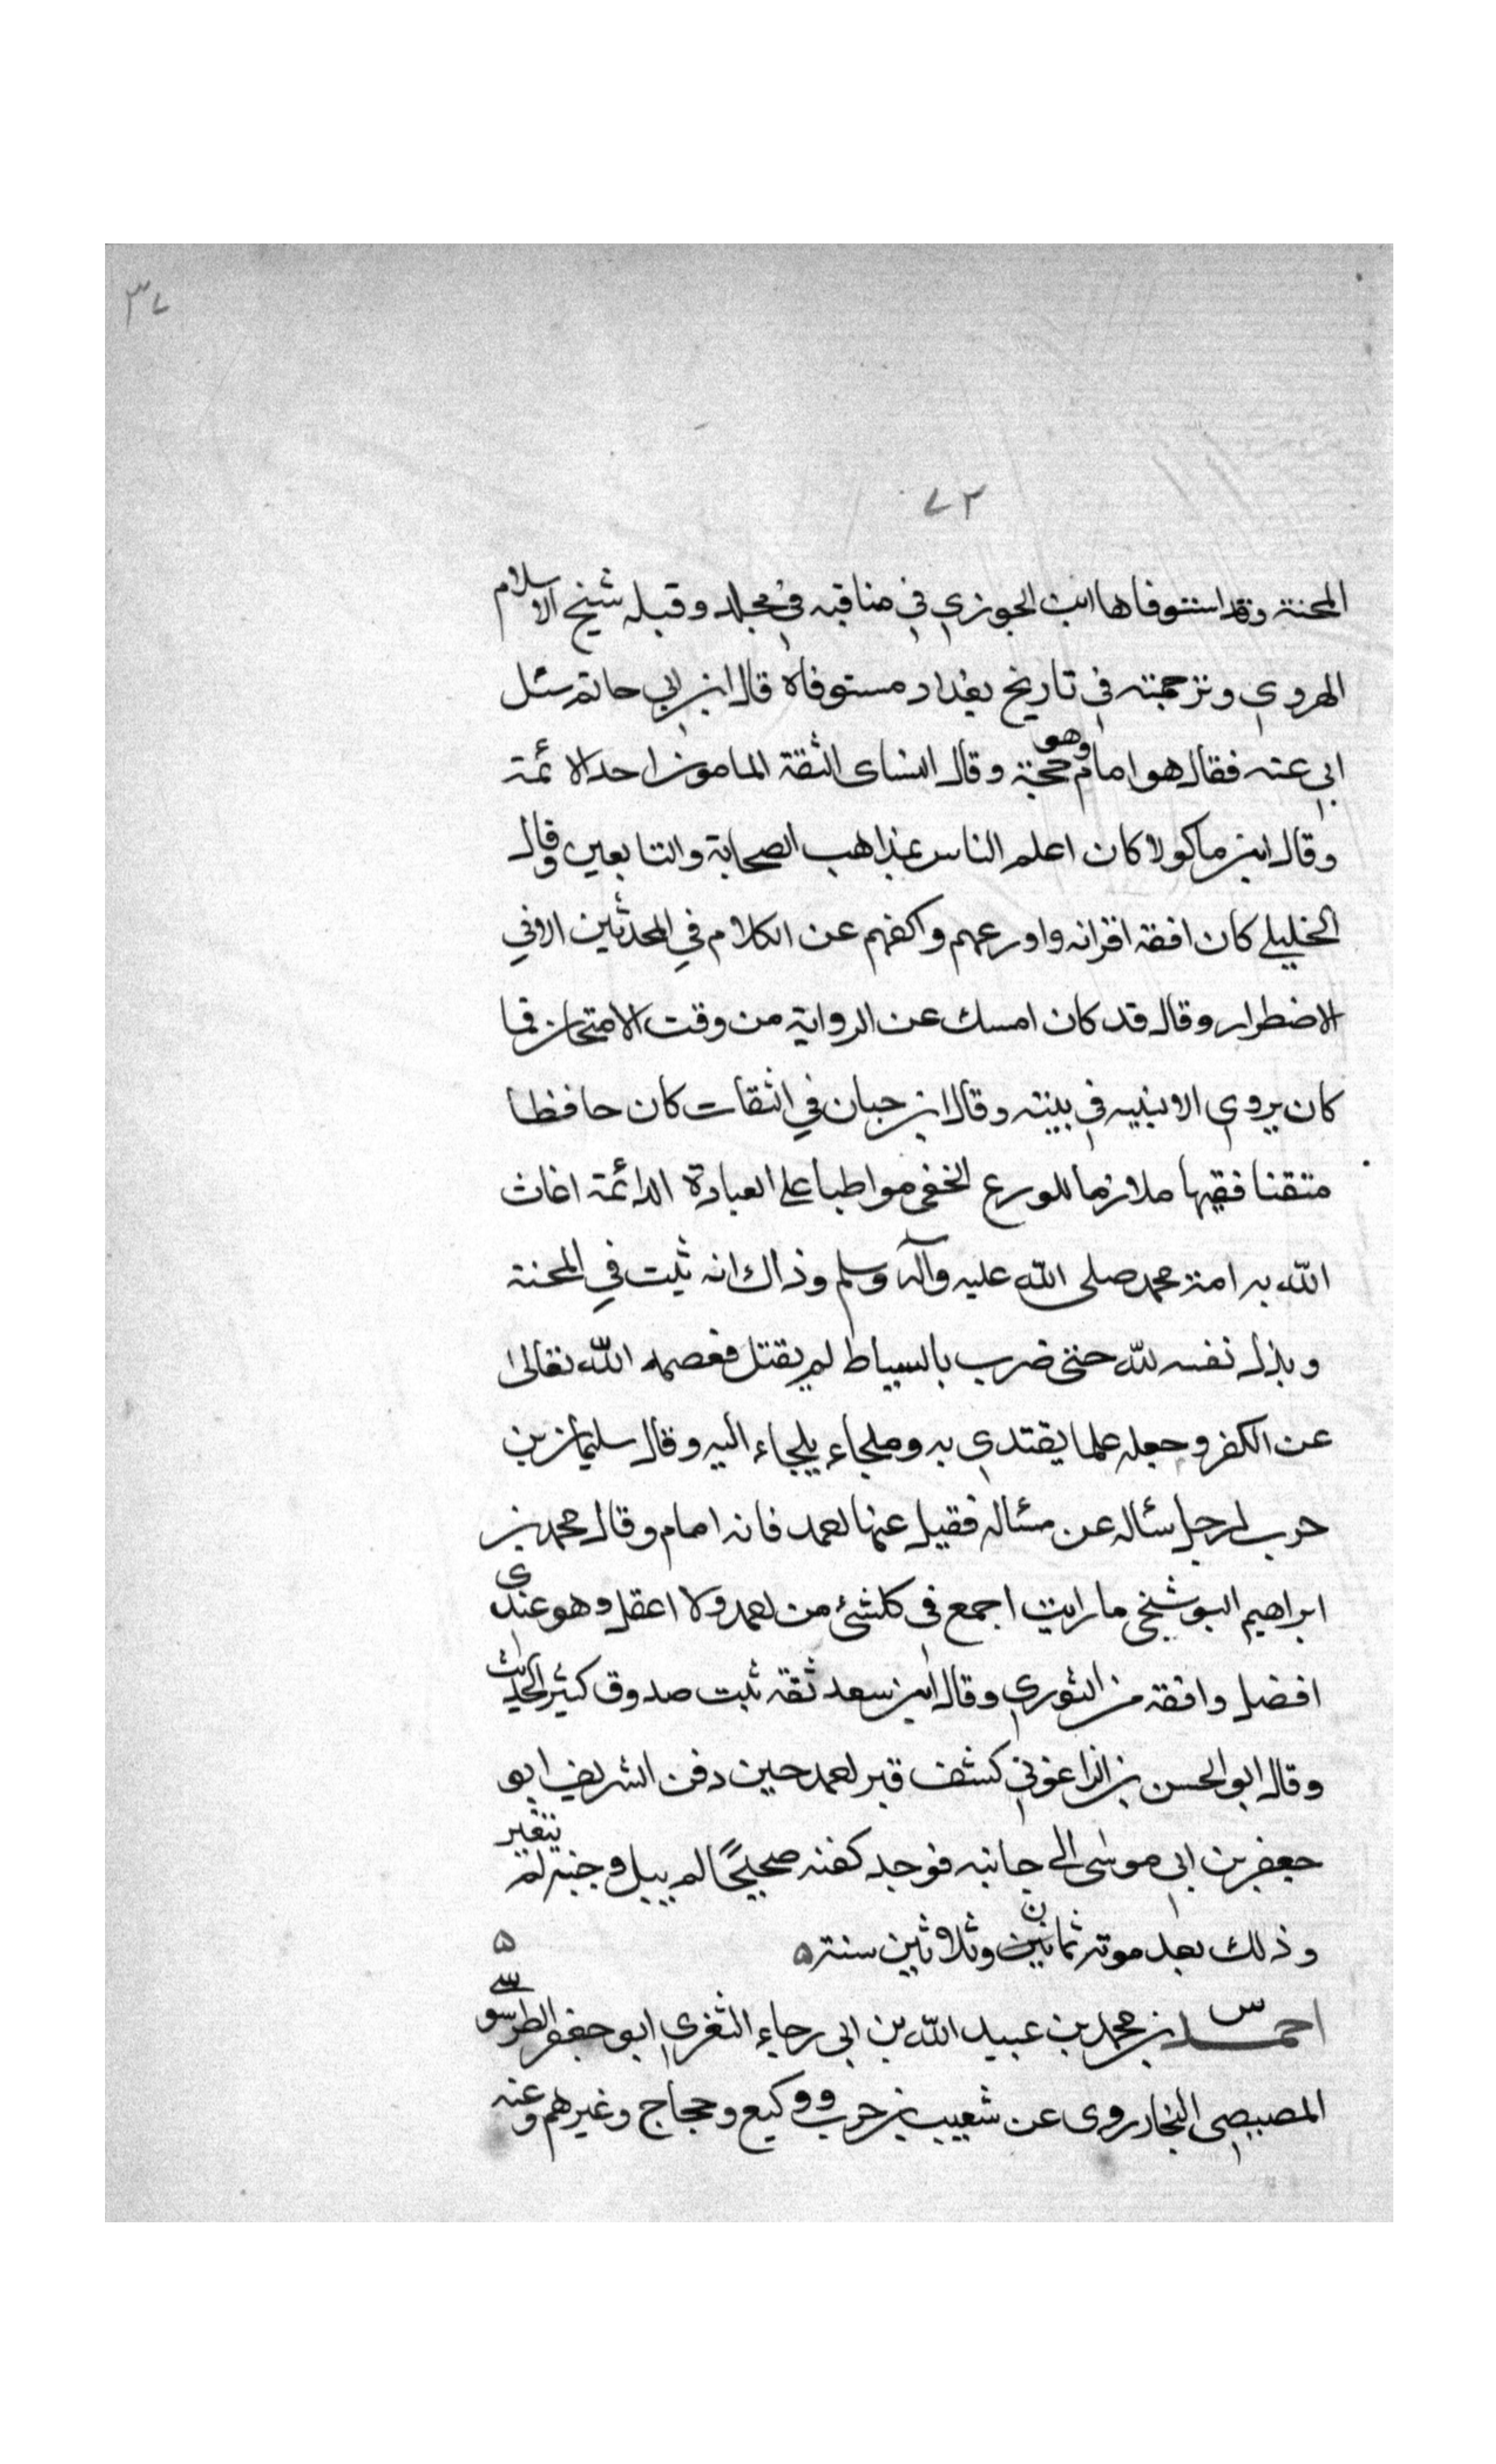 ٣٧
٧٢
المحنة وقد استوفاها ابن الجوزي في مناقبه في مجلد وقبله شيخ الاسلام
الهروي وترجمته في تاريخ بغداد مستوفاة قال ابن ابي حاتم سئل
ابي عنه فقال هو امام وهو حجة وقال النساى الثقة المامون احد الائمة
وقال ابن ماكولا كان اعلم الناس بمذاهب الصحابة والتابعين وقال
الخليلي كان افقه اقرانه واورعهم واكفهم عن الكلام في المحدثين الا في
الاضطرار وقال قد كان امسك عن الرواية من وقت الامتحان فما
كان يروي الا لبنيه في بيته وقال ابن حبان في الثقات كان حافظا
متقنا فقيها ملازما للورع الخفي مواظبا على العبادة الدائمة اغاث
الله به امة محمد صلى الله عليه وآله وسلم وذاك انه ثبت في المحنة
وبذل نفسه لله حتى ضرب بالسياط ليقتل فعصمه الله تعالى
عن الكفر وجعله علما يقتدي به وملجاء يلجاء اليه وقال سليمان بن
حرب لرجل سئاله عن مسئاله فقيل عنها لحمد فانه امام وقال محمد بن
ابراهيم البوشنجي ما رايت اجمع في كلشئ من لحمد ولا اعقل وهو عندى
افضل وافقه من الثوري وقال ابن سعد ثقة ثبت صدوق كثير الحديث
وقال ابو الحسن بن الزاغوني كشف قبر لحمد حين دفن الشريف ابو
جعفر بن ابي موسى الى جانبه فوجد كفنه صحيحًا لم يبيل وجنبه لم يتغير
وذلك بعد موته ثمانين وثلاثين سنة ه ه
س احمد بن محمد بن عبيد الله بن ابي رجاء الثغري ابو جعفر الطرسوسي
المصيصي النجار روى عن شعيب بن حرب ووكيع وحجاج وغيرهم وعنه